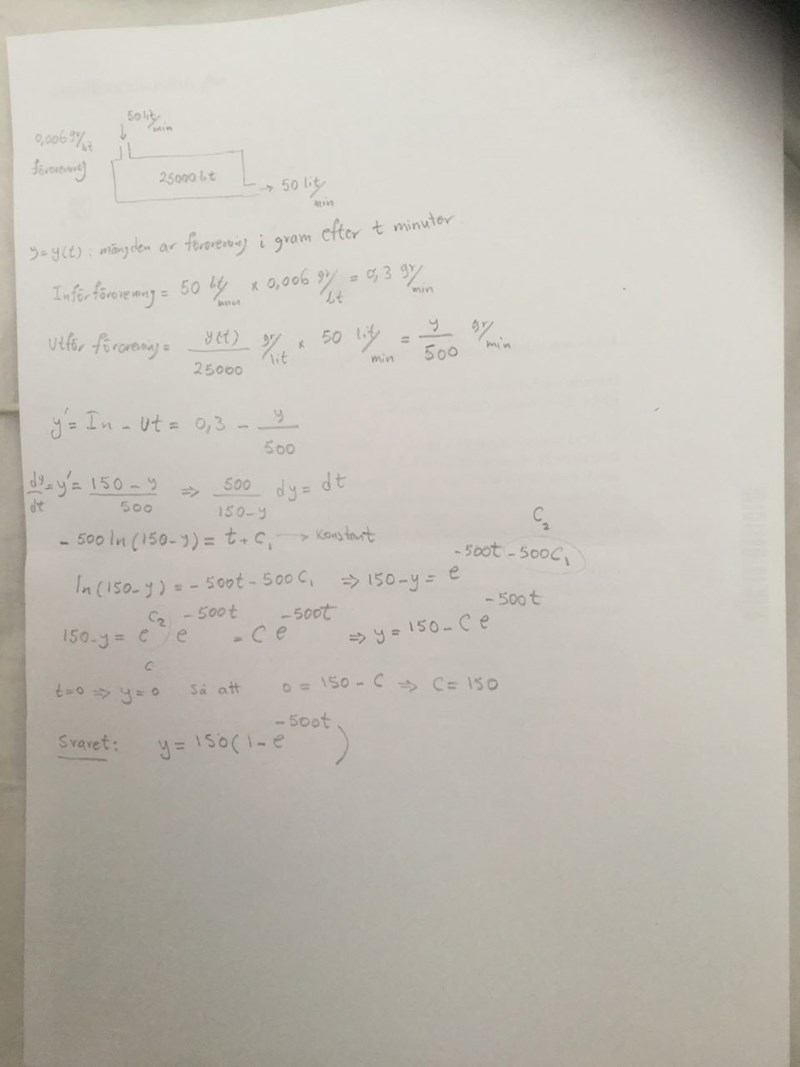 50 lit/min
0,006 gr/lit
förorening
25000 lit
→ 50 lit/min
y = y(t) : mängden av förorening i gram efter t minuter
Inför förorening = 50 lit/min × 0,006 gr/lit = 0,3 gr/min
Utför förorening = y(t)/25000 gr/lit × 50 lit/min = y/500 gr/min
y' = In - Ut = 0,3 - y/500
dy/dt = y' = (150 - y)/500 ⇒ 500/(150-y) dy = dt
- 500 ln (150-y) = t + C₁ → Konstant
C₂
ln (150-y) = - 500t - 500C₁ ⇒ 150-y = e^(-500t - 500C₁)
150-y = e^(C₂) e^(-500t) = C e^(-500t) ⇒ y = 150 - C e^(-500t)
C
t=0 ⇒ y=0 Så att 0 = 150 - C ⇒ C = 150
Svaret: y = 150(1 - e^(-500t))